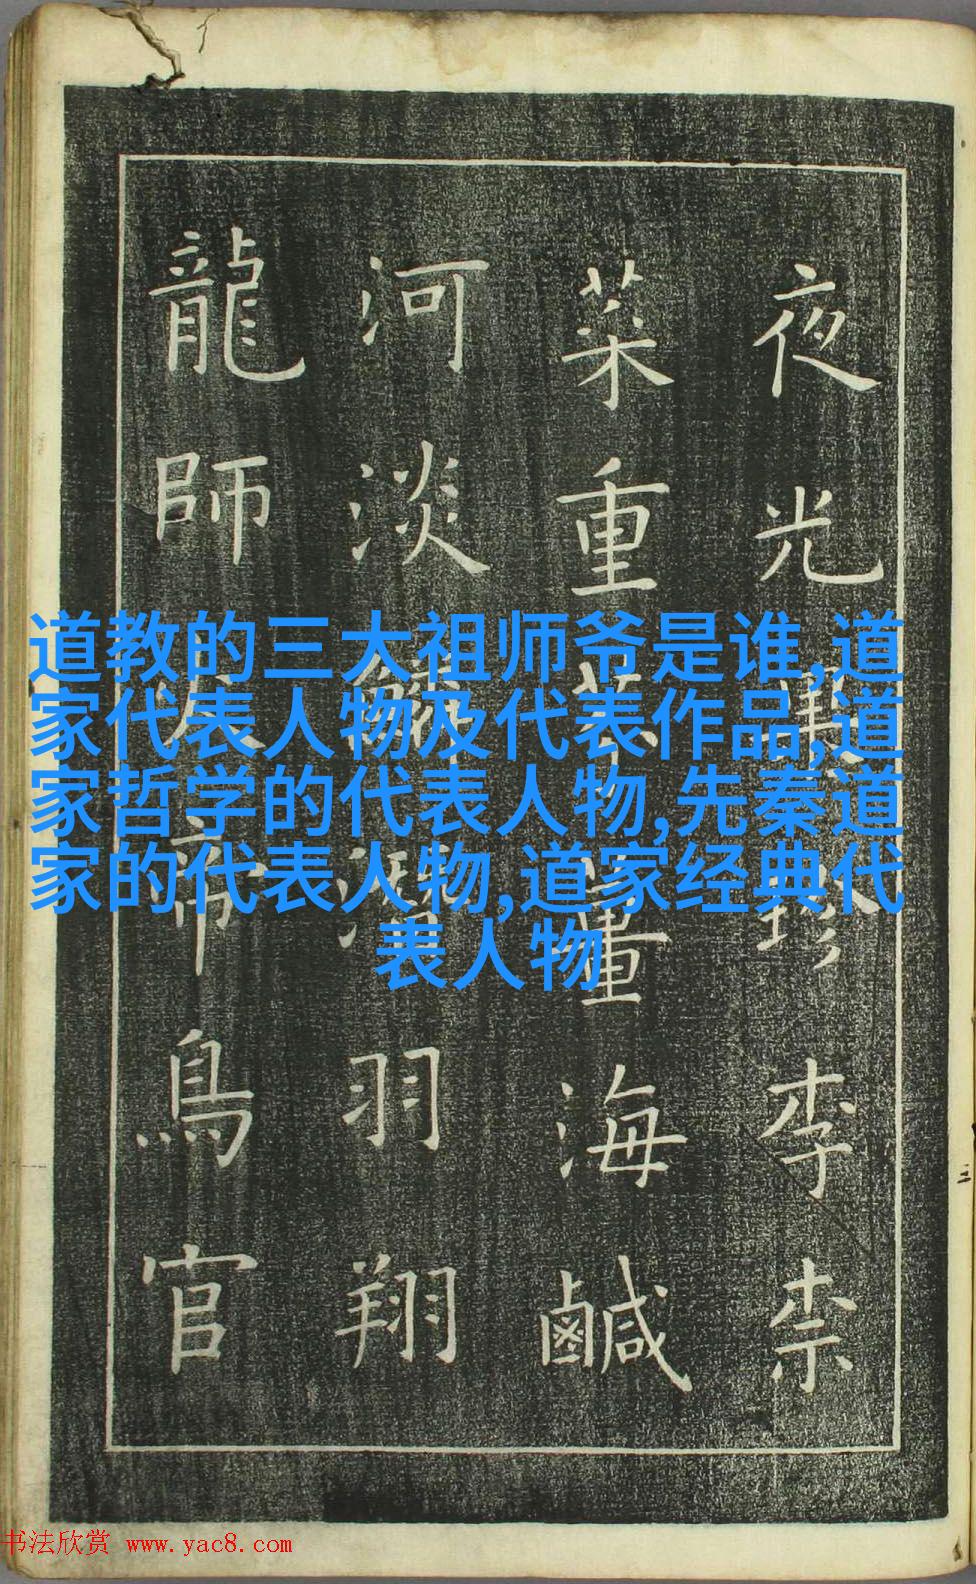 夜光果珍李柰
菜重芥薑海鹹
河淡鱗潛羽翔
龍師火帝鳥官
道教的三大祖师爷是谁,道
家代表人物及代表作品,道
家哲学的代表人物,先秦道
家的代表人物,道家经典代
表人物
书法欣赏 www.yac8.com